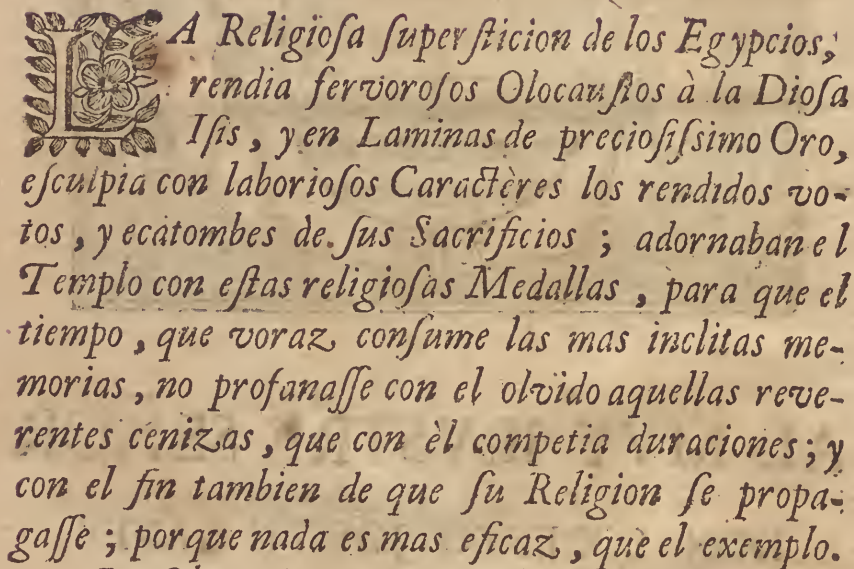 LA Religiosa superſticion de los Egypcios,
rendia fervoroſos Olocauſtos à la Dioſa
Iſis, y en Laminas de precioſiſsimo Oro,
eſculpia con laborioſos Caractères los rendidos vo-
tos, y ecatombes de ſus Sacrificios; adornaban el
Templo con eſtas religioſas Medallas, para que el
tiempo, que voraz conſume las mas inclitas me-
morias, no profanaſſe con el olvido aquellas reve-
rentes cenizas, que con èl competia duraciones; y
con el fin tambien de que ſu Religion ſe propa-
gaſſe; porque nada es mas eficaz, que el exemplo.